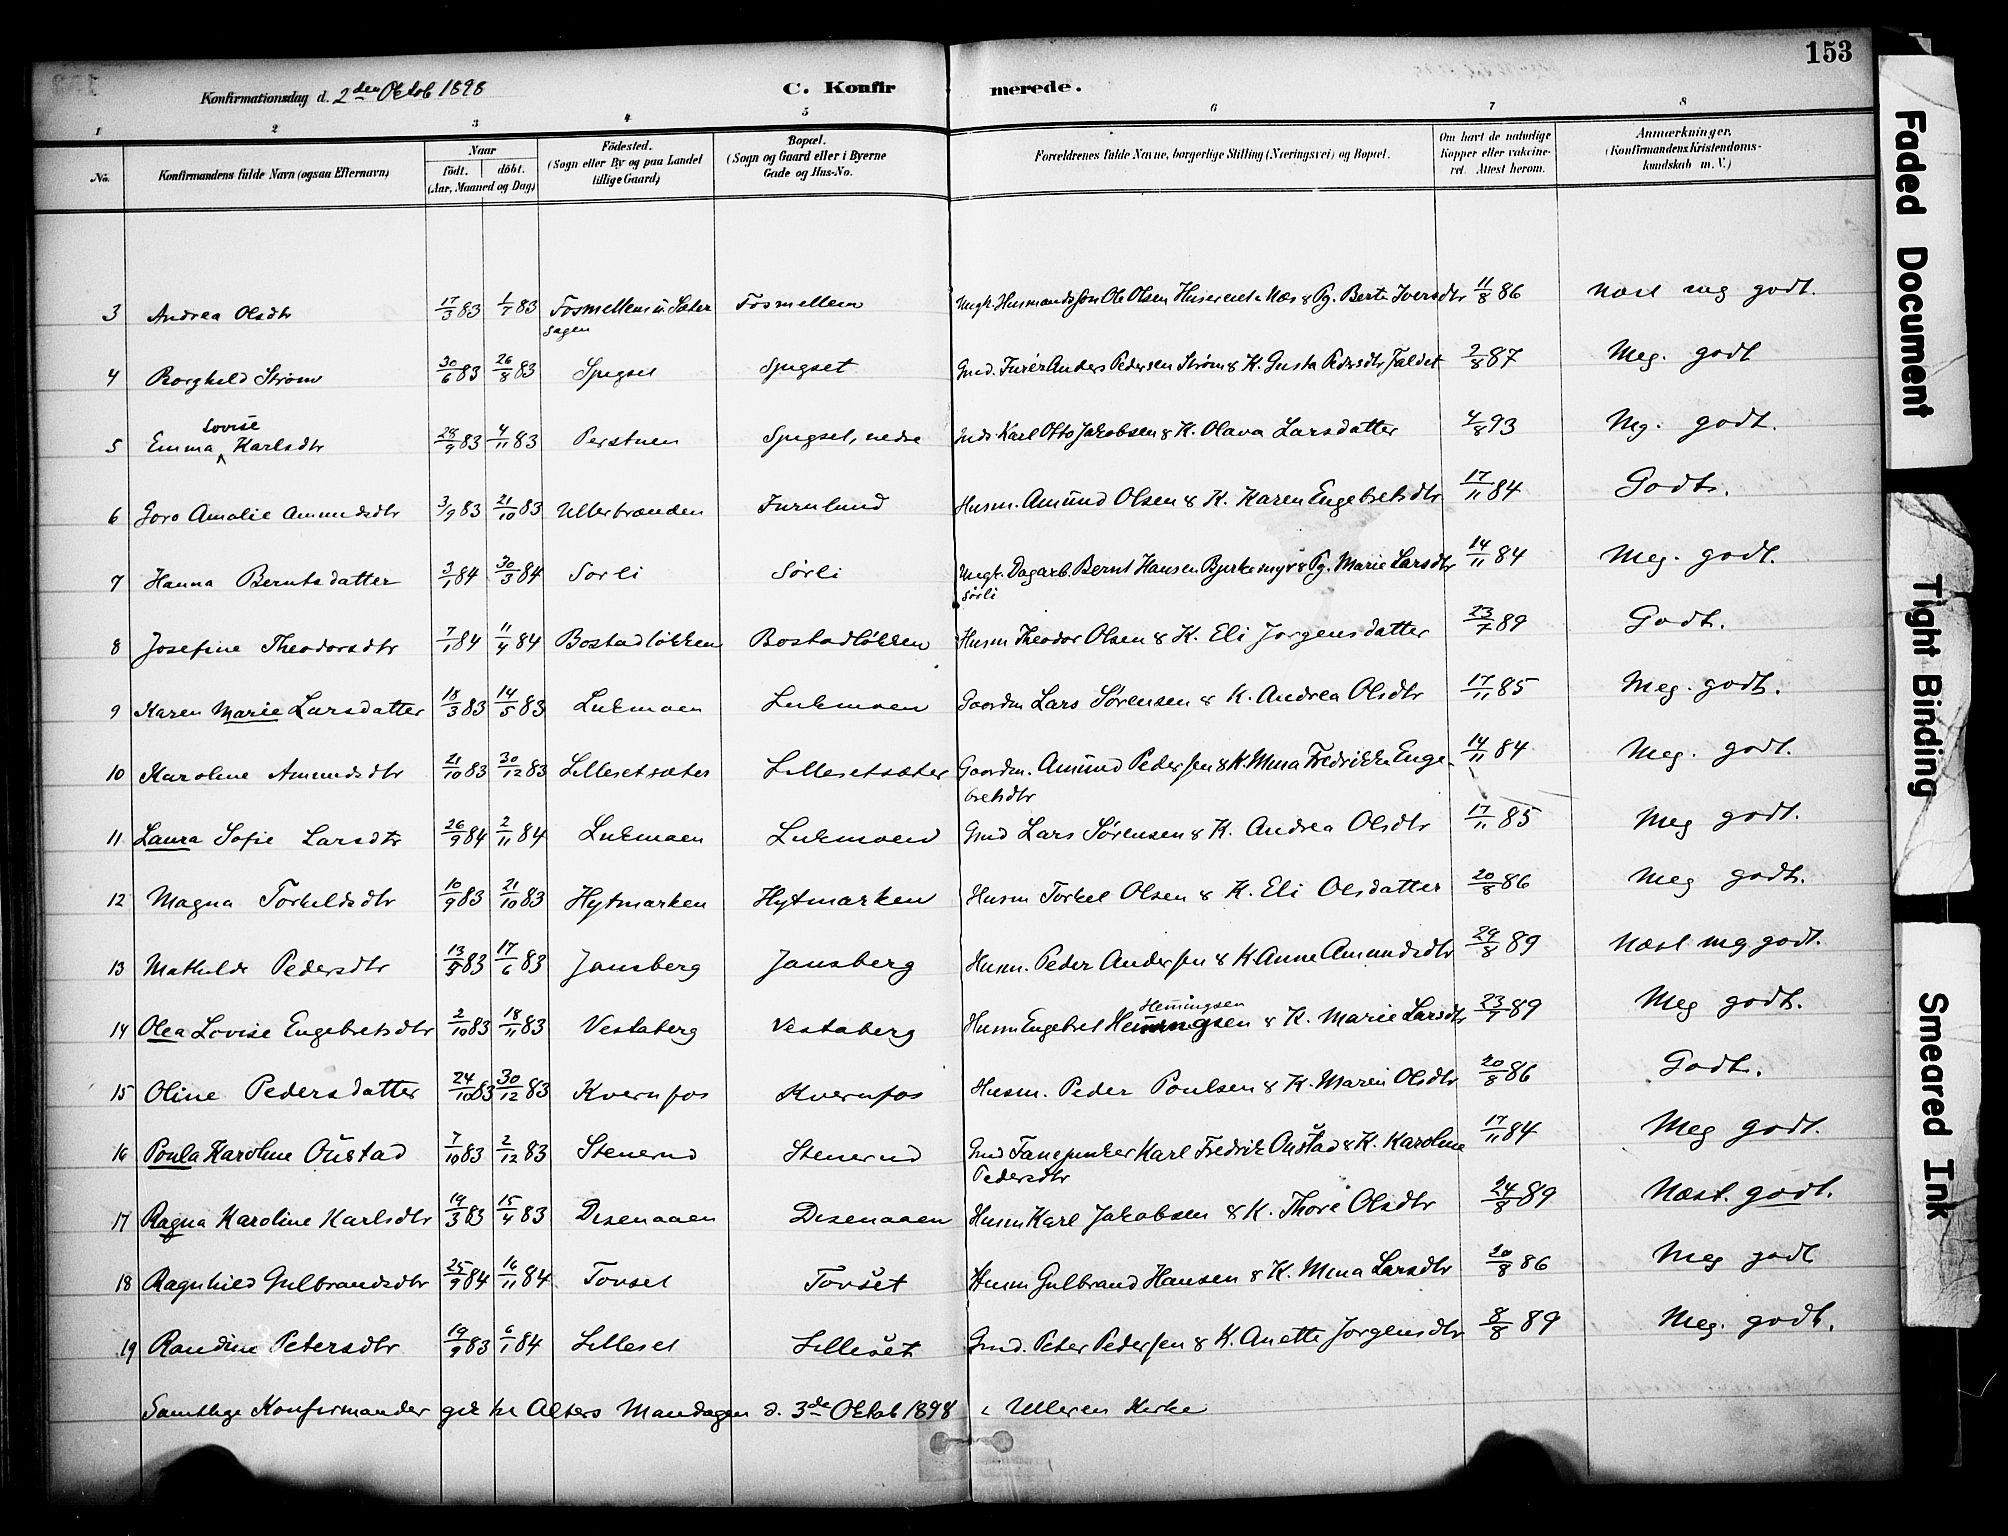 153
Konfirmationsdag d. 2den Oktob 1898
C. Konfirmerede.
1 2 3 4 5 6 7 8
No. Konfirmandens fulde Navn (ogsaa Efternavn) Naar födt. döbt. (Aar, Maaned og Dag) Födested. (Sogn eller By og paa Landet tillige Gaard) Bopæl. (Sogn og Gaard eller i Byerne Gade og Hus-No. Forældrenes fulde Navne, borgerlige Stilling (Næringsvei) og Bopæl. Om havt de naturlige Kopper eller vakcineret. Attest herom. Anmærkninger. (Konfirmandens Kristendomskundskab m. V.)
3 Andrea Olsdtr 17/3 83 1/7 83 Fosmellem Fosmellem Ungk. Husmandssøn Ole Olsen & Pg. Berte Iversdtr 11/8 86 Næst mg godt.
4 Borghild Strøm 30/6 83 26/8 83 Spigset Spigset Gmd. Furér Anders Pedersen Strøm & K. Gusta Pedersdtr Faldet 2/8 87 Meg. godt
5 Emma Lovise Karlsdtr 28/9 83 4/11 83 Perstuen Spigset, nedre Inds Karl Otto Jakobsen & K. Olava Larsdatter 4/8 93 Mg. godt.
6 Goro Amalie Amundsdtr 3/9 83 21/10 83 Ullerbrænden Furulund Husm. Amund Olsen & K. Karen Engebretsdtr 17/11 84 Godt.
7 Hanna Berntsdatter 3/1 84 30/3 84 Sorli Sørli Ungk. Dagarb. Bernt Hansen Bjerkemyr & Pg. Marie Larsdtr Sørli 14/11 84 Meg. godt.
8 Josefine Theodorsdtr 7/1 84 11/4 84 Bostadløkken Bostadløkken Husm Theodor Olsen & K. Eli Jorgensdatter 23/7 89 Godt.
9 Karen Marie Larsdatter 18/3 83 14/5 83 Lukmoen Lukmoen Gaardm Lars Sørensen & K. Andrea Olsdtr 17/11 85 Meg. godt.
10 Karoline Amundsdtr 21/10 83 30/12 83 Lillesetsæter Lillesetsæter Gaardm. Amund Pedersen & K. Mina Fredrikke Engebretsdtr 14/11 84 Meg. godt.
11 Laura Sofie Larsdtr 26/9 84 2/11 84 Lukmoen Lukmoen Gmd Lars Sørensen & K. Andrea Olsdtr 17/11 85 Meg godt.
12 Magna Torkeldsdtr 10/9 83 21/10 83 Hytmarken Hytmarken Husm Torkel Olsen & K. Eli Olsdatter 20/8 86 Meg godt.
13 Mathilde Pedersdtr 13/5 83 17/6 83 Jansberg Jansberg Husm. Peder Andersen & K Anne Amundsdtr 29/8 89 Næst mg godt.
14 Olea Lovise Engebretsdtr 2/10 83 18/11 83 Vestaberg Vestaberg Husm Engebret Hemingsen Hemingsen & K. Marie Larsdtr 23/7 89 Meg godt.
15 Oline Pedersdatter 24/10 83 30/12 83 Kvernfos Kvernfos Husm. Peder Poulsen & K. Maren Olsdtr 20/8 86 Godt.
16 Poula Karoline Oustad 7/10 83 2/12 83 Stenerud Stenerud Gmd Fanejunker Karl Fredrik Oustad & K. Karoline Pedersdtr 17/11 84 Meg godt.
17 Ragna Karoline Karlsdtr 19/3 83 15/4 83 Disenaaen Disenaaen Husm Karl Jakobsen & K. Thore Olsdtr 24/8 89 Næst. godt.
18 Ragnhild Gulbrandsdtr 25/9 84 16/11 84 Tovset Tovset Husm Gulbrand Hansen & K. Mina Larsdtr 20/8 86 Meg godt
19 Randine Petersdtr 19/9 83 6/1 84 Lilleset Lilleset Gmd. Peter Pedersen & K. Anette Jorgensdtr 8/8 89 Meg. godt.
Samtlige Konfirmander gik til Alters Mandagen d. 3de Oktob 1898 i Ulleren Kirke
Faded Document
Tight Binding
Smeared Ink